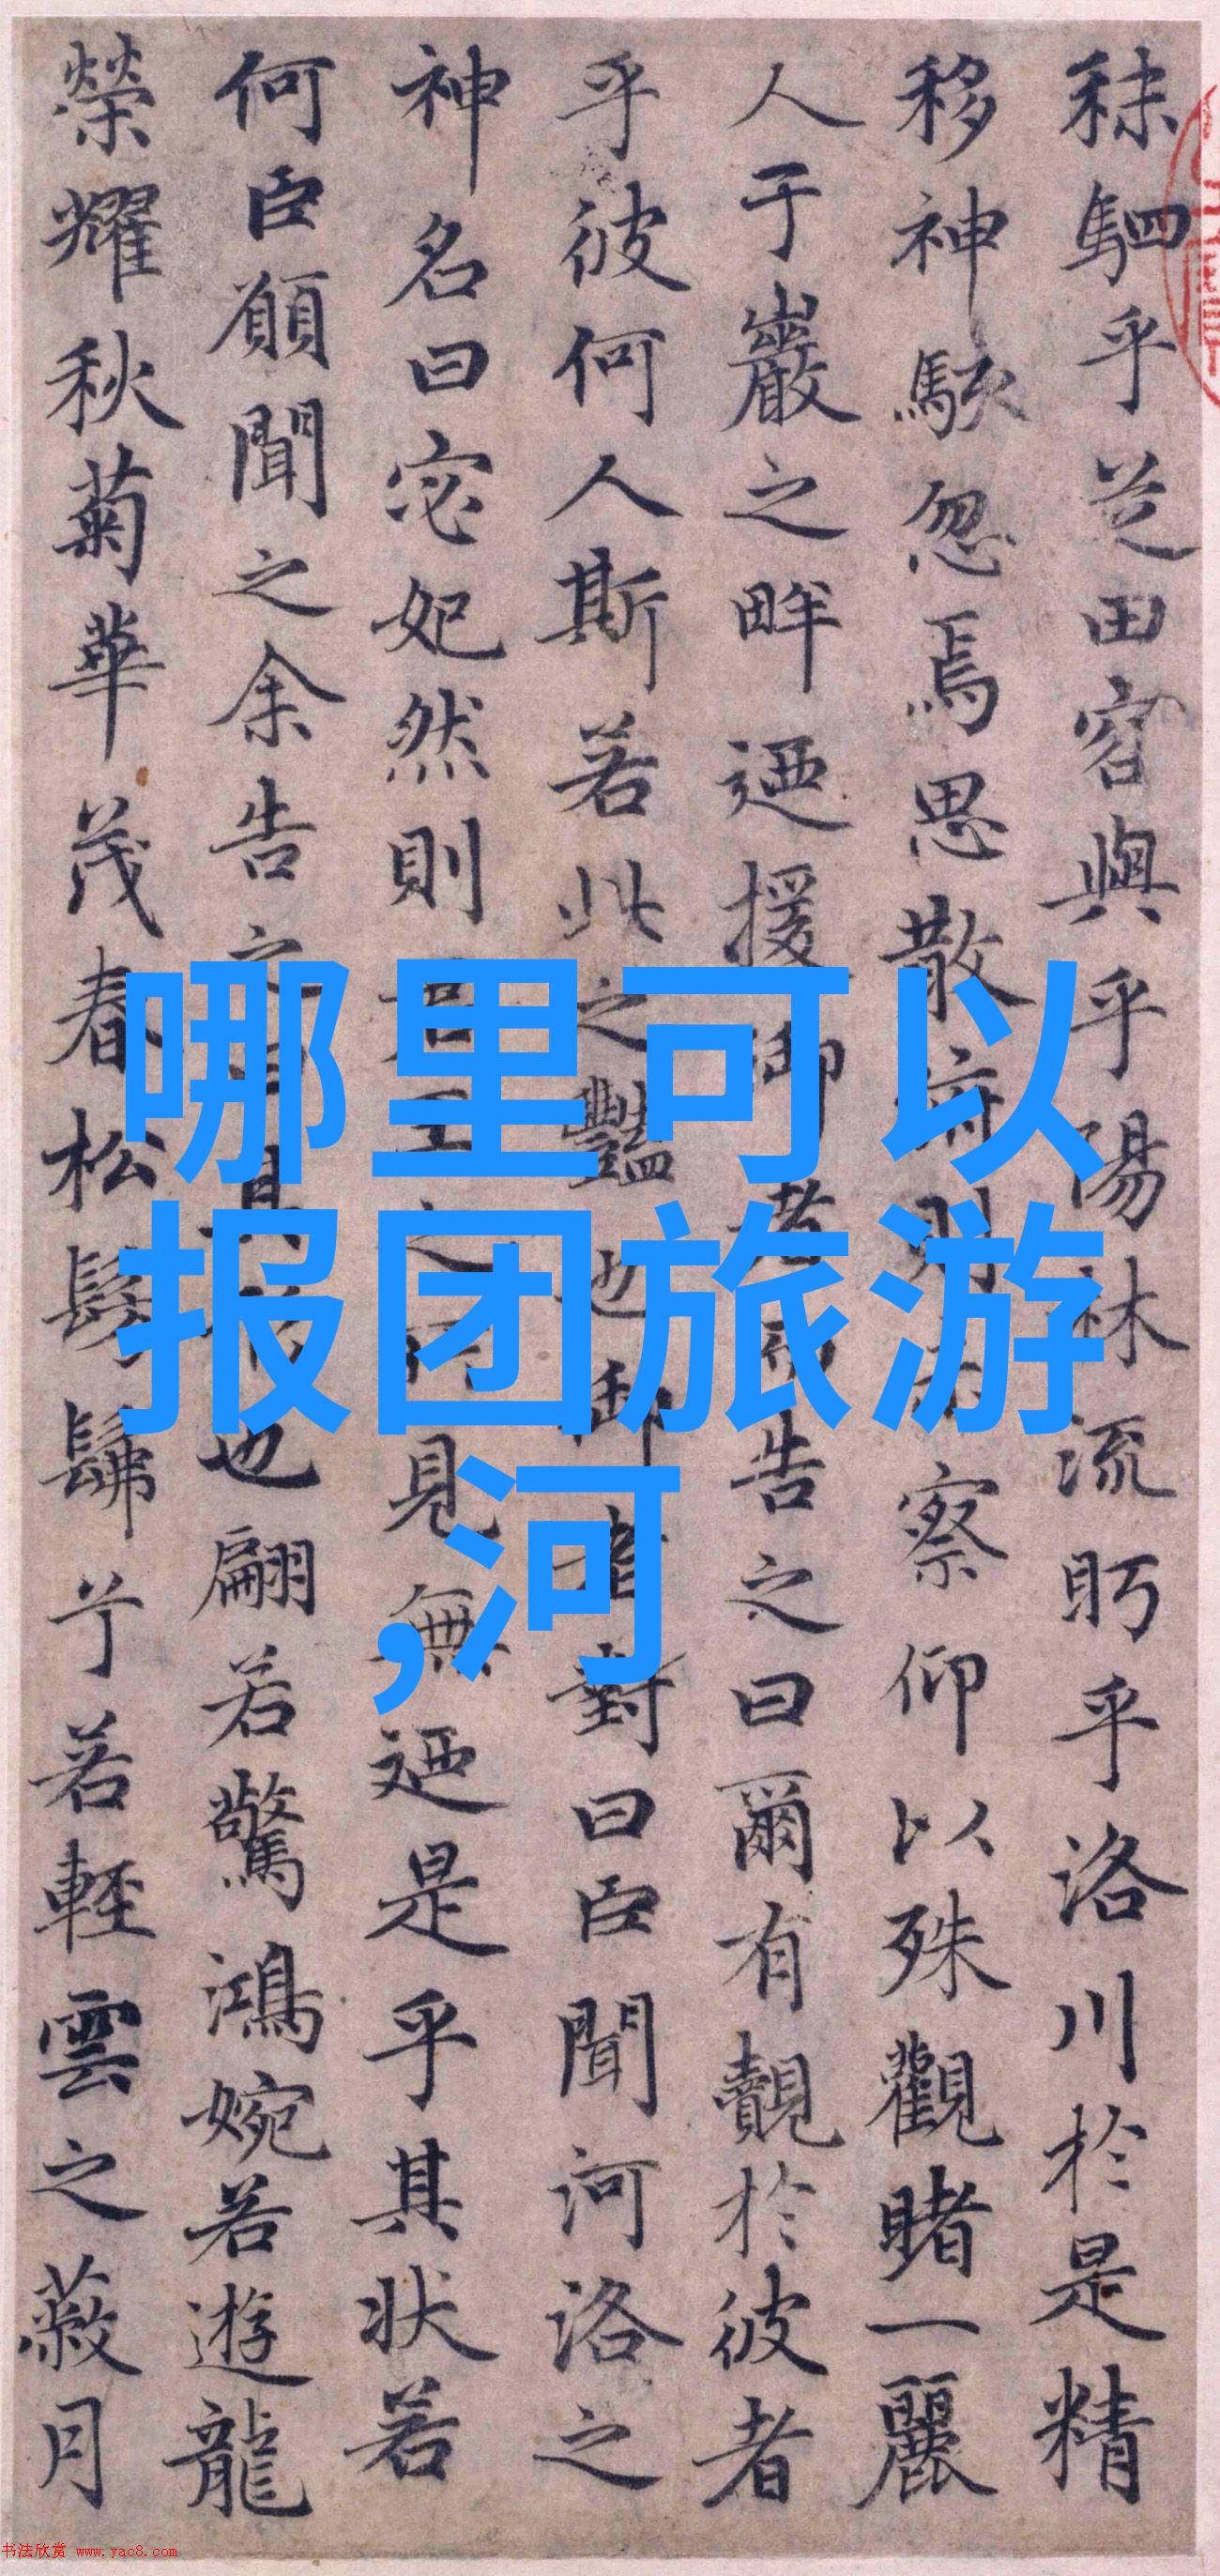 哪里可以
报团旅游
,河
秣駟乎芝田容與乎陽林流眄乎洛川於是精
移神駭忽焉思散俯則未察仰以殊觀睹一麗
人于巖之畔迺援御者而告之曰爾有覿於彼者
乎彼何人斯若此之豔也御者對曰臣聞河洛之
神名曰宓妃然則君王之所見無迺是乎其狀若
何臣願聞之余告之曰其形也翩若驚鴻婉若遊龍
榮耀秋菊華茂春松髣髴兮若輕雲之蔽月
书法欣赏 www.yac8.com